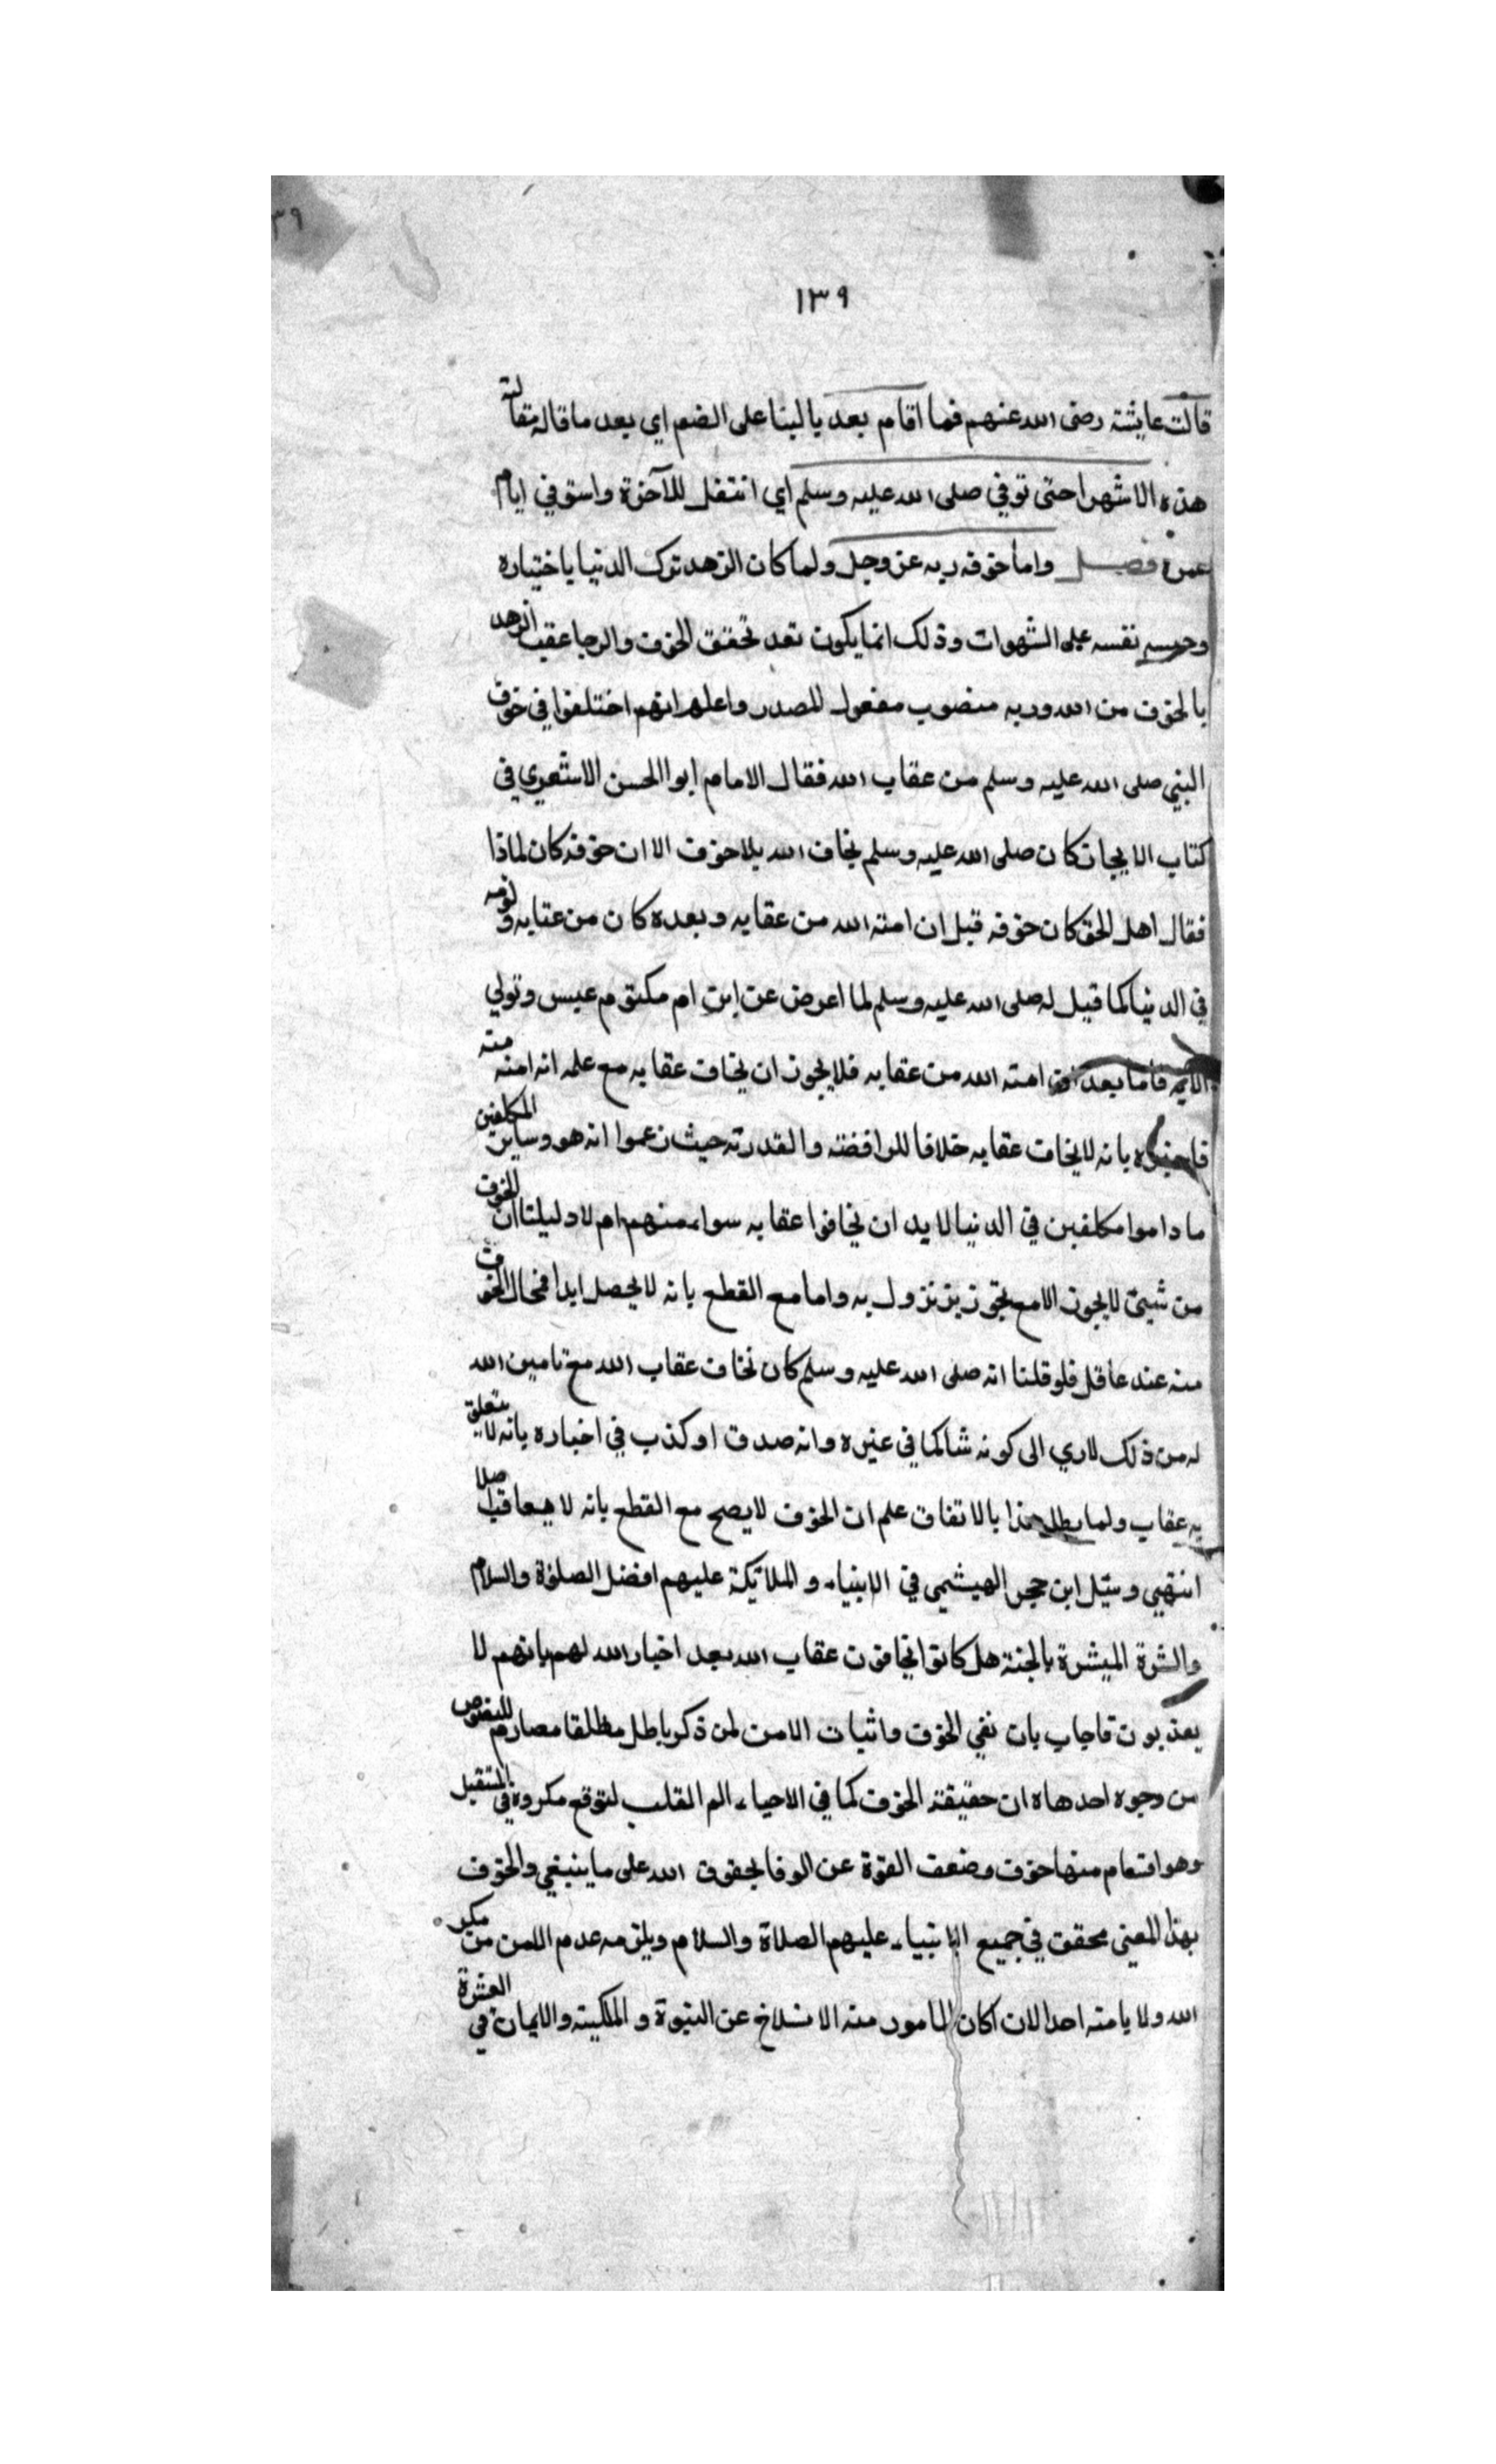 ٣٩
١٣٩
قالت عايشة رضى الله عنهم فما اقام بعد يا لبنا على الضم اي بعد ما قاله مقالته
هذه الا شهرا حتى توفي صلى الله عليه وسلم اي انتقل للآخرة واستوفي ايام
عمره فصل واما خوفه ربه عز وجل ولما كان الزهد ترك الدنيا باختياره
وحبسه نفسه على الشهوات وذلك انما يكون بعد تحقق الخوف والرجا عقب الزهد
بالخوف من الله وربه منصوب مفعول للمصدر واعلم انهم اختلفوا في خوف
النبي صلى الله عليه وسلم من عقاب الله فقال الامام ابو الحسن الاشعري في
كتاب الايجاز كان صلى الله عليه وسلم يخاف الله بلا خوف الا ان خوفه كان لماذا
فقال اهل الحق كان خوفه قبل ان امنه الله من عقابه وبعده كان من عتابه ولومه
في الدنيا كما قيل له صلى الله عليه وسلم لما اعرض عن ابن ام مكتوم عبس وتولي
الايه فاما بعد امنه الله من عقابه فلا يجوز ان يخاف عقابه مع علمه انه امنه منه
بانه لا يخاف عقابه خلافا للرافضة والقدرته حيث زعموا انه هو وساير المكلفين
ما داموا مكلفين في الدنيا لا بد ان يخافوا عقابه سواء منهم ام لا دليلنا ان الخوف
من شيئ لا يجوز الا مع تجويز نزول به واما مع القطع بانه لا يحصل ابدا فمحال الخوف
منه عند عاقل فلو قلنا انه صلى الله عليه وسلم كان نخاف عقاب الله مع تامين الله
له من ذلك لادي الى كونه شاكا في غيره وانه صدق او كذب في اخباره بانه لا يتعلق
به عقاب ولما بطل هذا بالاتفاق علم ان الخوف لا يصح مع القطع بانه لا يعاقب اصلا
انتهي وسئل ابن حجر الهيثمي في الانبياء والملائكة عليهم افضل الصلوة والسلام
والشرة المبشرة بالجنة هل كانوا يخافون عقاب الله بعد اخبار الله لهم بانهم لا
يعذبون فاجاب بان نفي الخوف واثبات الامن لمن ذكر باطل مطلقا مصادم للنصوص
من وجوه احدها ان حقيقة الخوف كما في الاحياء الم القلب لتوقع مكروه في المستقبل
وهو اقسام منها خوف وضعف القوة عن الوفا بحقوق الله على ما ينبغي والخوف
بهذا المعني محقق في جميع الانبياء عليهم الصلاة والسلام ويلزمه عدم الامن من مكر
الله ولا يامنه احد الان اكان المامور منه الانسلاخ عن النبوة والملكية والايمان في العشرة